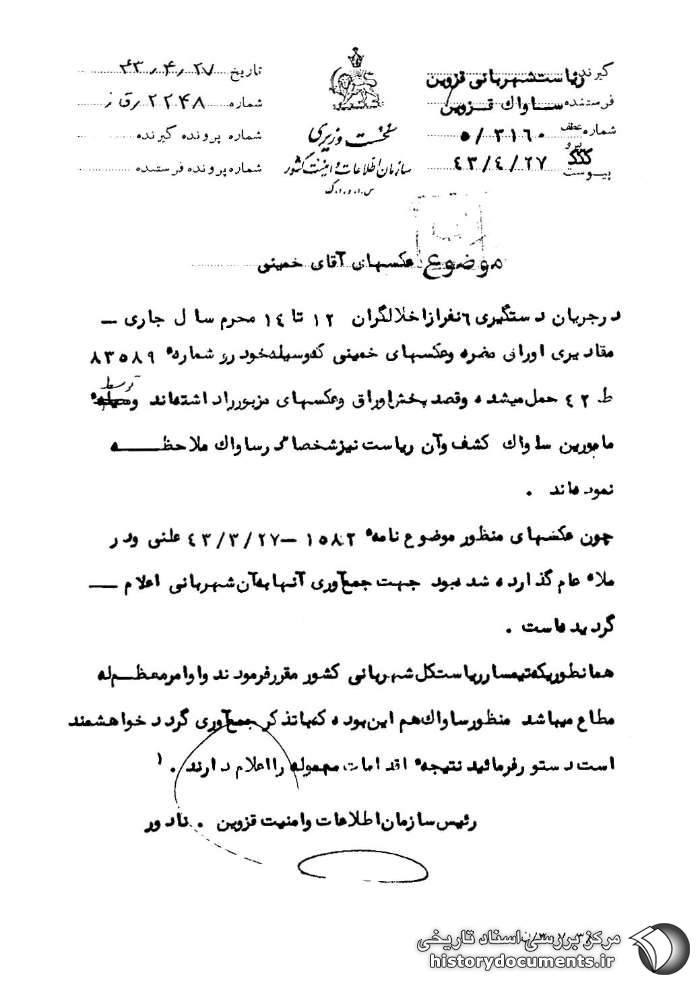 گیرنده ریاست شهربانی قزوین
فرستنده ساواك قزوین
شماره عطف ۵/۳۱۶۰
پیرو
پیوست ۴۳/۴/۲۷
نخست وزیری
سازمان اطلاعات و امنیت کشور
س.ا.و.ا.ک
تاریخ ۴۳/۴/۲۷
شماره ۲۲۴۸
شماره پرونده گیرنده
شماره پرونده فرستنده
موضوع عکسهای آقای خمینی
درجریان دستگیری ۶ نفر از اخلالگران ۱۲ تا ۱۴ محرم سال جاری —
مقادیری اوراق مضره وعکسهای خمینی که وسیله خودرو شماره ۸۳۵۸۹
ط ۴۲ حمل میشده وقصد پخش اوراق وعکسهای مزبور را داشته اند توسط
مامورین ساواك کشف وآن ریاست نیز شخصا در ساواك ملاحظه
نموده اند .
چون عکسهای منظور موضوع نامه ۱۵۸۲ – ۴۳/۳/۲۷ علنی ودر
ملاء عام گذارده شده بود جهت جمع آوری آنها به آن شهربانی اعلام —
گردیده است .
همانطوریکه تیمسار ریاست کل شهربانی کشور مقرر فرمودند واوامر معظم له
مطاع میباشد منظور ساواك هم این بوده که با تذکر جمع آوری گردد خواهشمند
است دستور فرمائید نتیجه اقدامات معموله را اعلام دارند .
رئیس سازمان اطلاعات وامنیت قزوین . نادور
مرکز بررسی اسناد تاریخی
historydocuments.ir